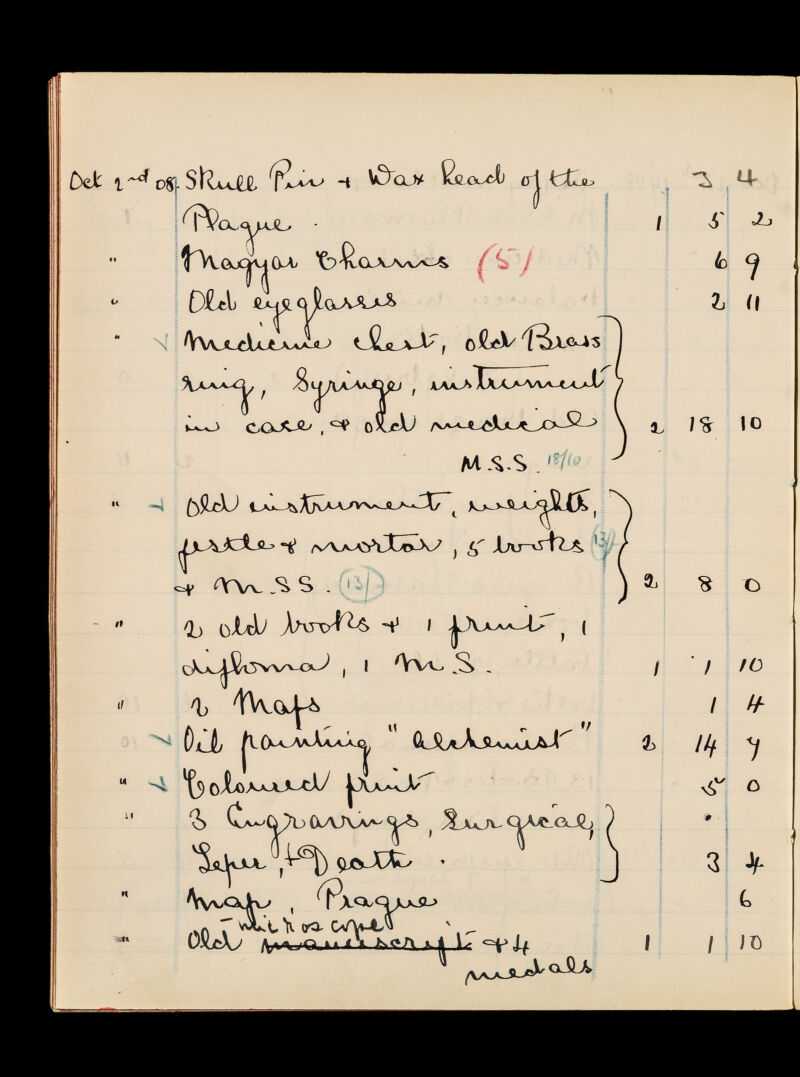 Oct 2nd 08. Skull Pin + Wax head of the 3 4
Plague . 1 5 2
" Magyar Charms (5) 6 9
" Old eyeglasses 2 11
" Medicine chest, old Brass
ring, Syringe, instrument
in case, & old medical 2 18 10
M.S.S. 18/10
" Old instrument, weights,
pestle & mortar, 5 books 13/
& M.SS. 13/ 2 8 0
" 2 old books & 1 print, 1
diploma, 1 M.S. 1 1 10
" 2 Maps 1 4
" Oil painting "Alchemist" 2 14 7
" Coloured print 5 0
" 3 Engravings, Surgical,
Leper, + Death . 3 4
" Map, Prague 6
microscope
" Old manuscript & 4 1 1 10
medals